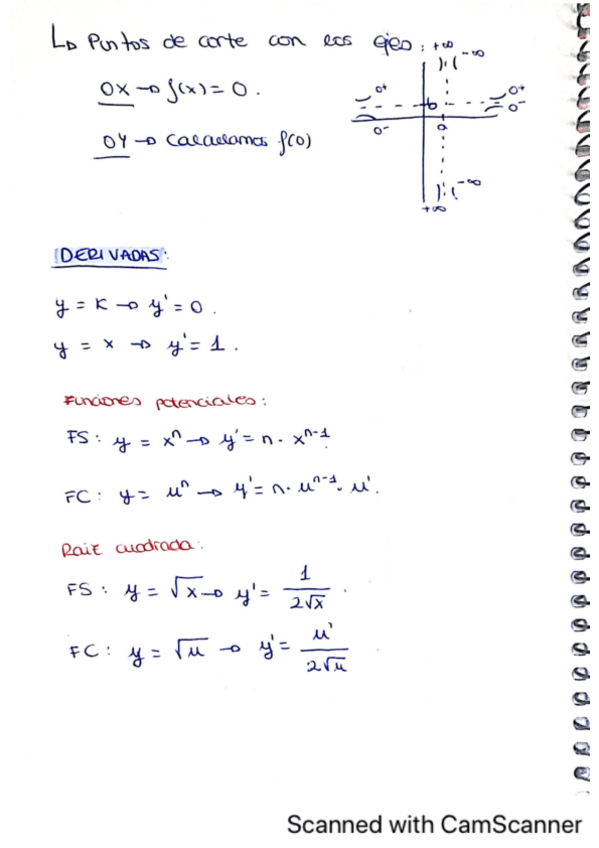 L> Puntos de corte con los ejes:
OX → f(x) = 0.
OY → Calculamos f(0)
+∞ -∞
0+ 0+
b 0-
0- a
-∞
+∞
DERIVADAS:
y = K → y' = 0.
y = x → y' = 1.
Funciones potenciales:
FS: y = xⁿ → y' = n · xⁿ⁻¹
FC: y = uⁿ → y' = n · uⁿ⁻¹ · u'.
Raíz cuadrada:
FS: y = √x → y' = 1/(2√x).
FC: y = √u → y' = u'/(2√u)
Scanned with CamScanner